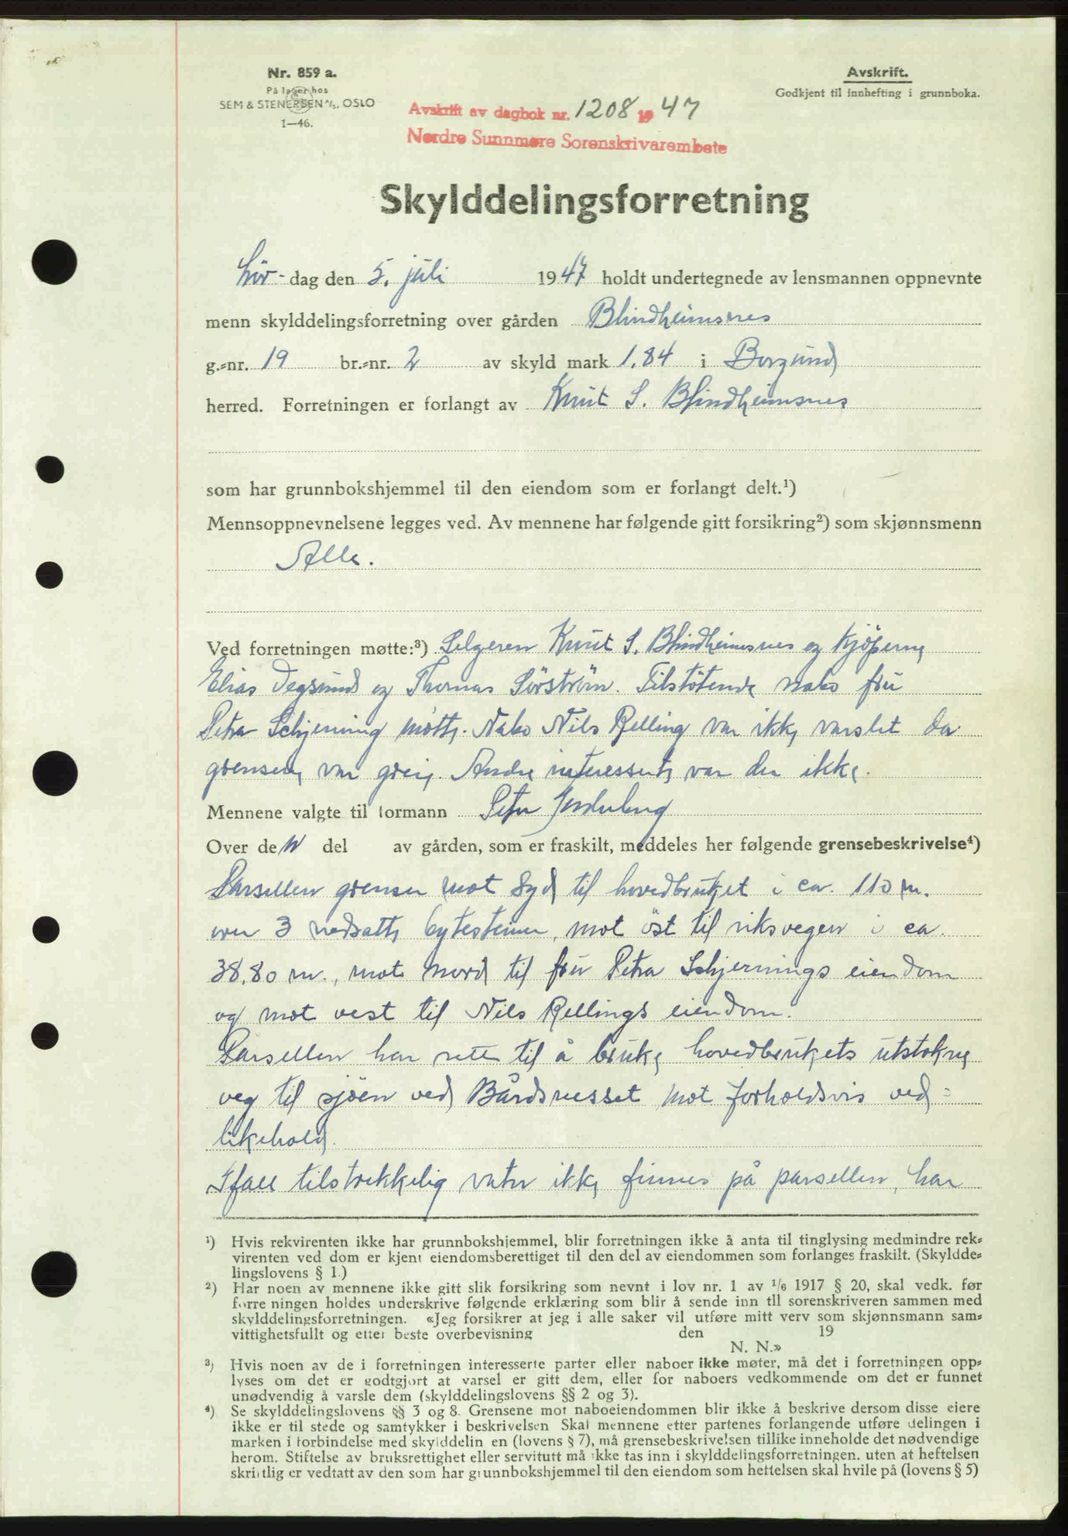 Nr. 859 a.
På lager hos
SEM & STENERSEN A/S, OSLO
1—46.
Avskrift.
Godkjent til innhefting i grunnboka.
Avskrift av dagbok nr. 1208 1947
Nordre Sunnmøre Sorenskrivarembete
Skylddelingsforretning
Lør- dag den 5. juli 1947 holdt undertegnede av lensmannen oppnevnte
menn skylddelingsforretning over gården Blindheimsnes
g.-nr. 19 br.-nr. 2 av skyld mark 1.84 i Borgund
herred. Forretningen er forlangt av Knut S. Blindheimsnes
som har grunnbokshjemmel til den eiendom som er forlangt delt.¹)
Mennsoppnevnelsene legges ved. Av mennene har følgende gitt forsikring²) som skjønnsmenn
Alle.
Ved forretningen møtte:³) Selgeren Knut S. Blindheimsnes og kjøperne
Elias Degsund og Thomas Sørstrøm. Tilstøtende nabo fru
Petra Schjerning møtte. Nabo Nils Relling var ikke varslet da
grensene var greie. Andre interesserte var der ikke.
Mennene valgte til formann Peter
Over den del av gården, som er fraskilt, meddeles her følgende grensebeskrivelse⁴)
Parsellen grenser mot Syd til hovedbruket i ca. 110 m.
over 3 nedsatte bytesteiner, mot øst til riksvegen i ca.
38,80 m., mot Nord til fru Petra Schjernings eiendom
og mot vest til Nils Rellings eiendom.
Parsellen har rett til å bruke hovedbrukets utstokne
veg til sjøen ved Bårdsnesset mot forholdsvis ved=
likehold.
Ifall tilstrekkelig vatn ikke finnes på parsellen, har
¹) Hvis rekvirenten ikke har grunnbokshjemmel, blir forretningen ikke å anta til tinglysing medmindre rek=
virenten ved dom er kjent eiendomsberettiget til den del av eiendommen som forlanges fraskilt. (Skyldde=
lingslovens § 1.)
²) Har noen av mennene ikke gitt slik forsikring som nevnt i lov nr. 1 av 1/6 1917 § 20, skal vedk. før
forretningen holdes underskrive følgende erklæring som blir å sende inn til sorenskriveren sammen med
skylddelingsforretningen. «Jeg forsikrer at jeg i alle saker vil utføre mitt verv som skjønnsmann sam=
vittighetsfullt og etter beste overbevisning den 19
N. N.»
³) Hvis noen av de i forretningen interesserte parter eller naboer ikke møter, må det i forretningen opp=
lyses om det er godtgjort at varsel er gitt dem, eller for naboers vedkommende om det er funnet
unødvendig å varsle dem (skylddelingslovens §§ 2 og 3).
⁴) Se skylddelingslovens §§ 3 og 8. Grensene mot naboeiendommen blir ikke å beskrive dersom disse eiere
ikke er til stede og samtykker i beskrivelsen Skal mennene etter partenes forlangende utføre delingen i
marken i forbindelse med skylddelin en (lovens § 7), må grensebeskrivelsen tillike inneholde det nødvendige
herom. Stiftelse av bruksrettighet eller servitutt må ikke tas inn i skylddelingsforretningen. uten at heftelsen
skriftlig er vedtatt av den som har grunnbokshjemmel til den eiendom som heftelsen skal hvile på (lovens § 5)